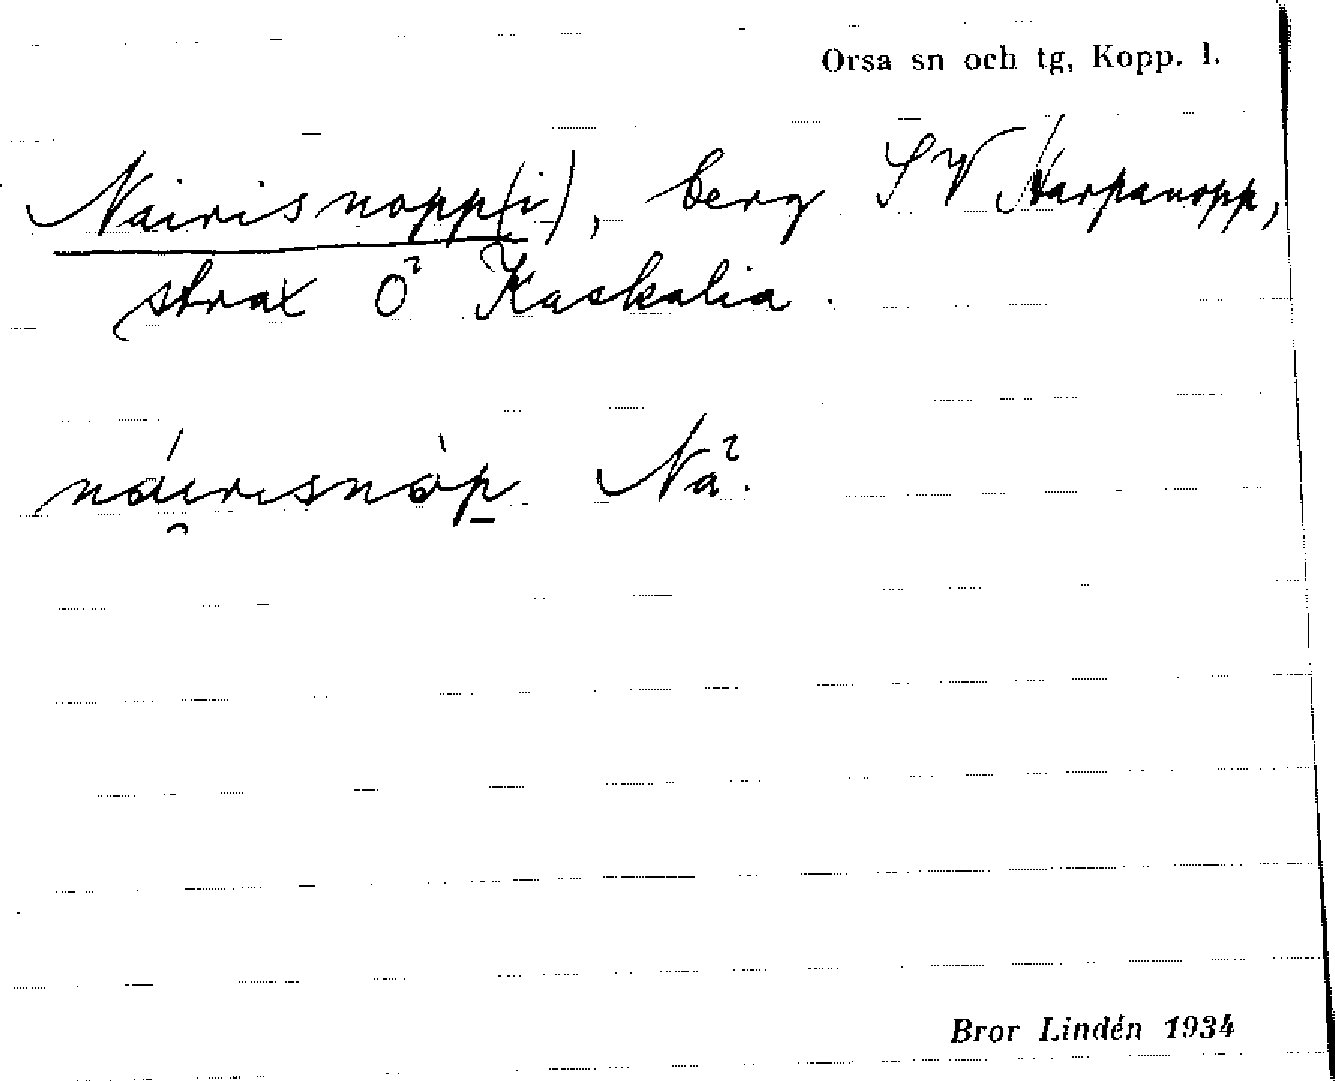 Orsa sn och tg, Kopp. l.
Nairisnopp(i), berg SV Harpanopp,
strax Ö Kackalia.
náirisnòp Na².
Bror Lindén 1934